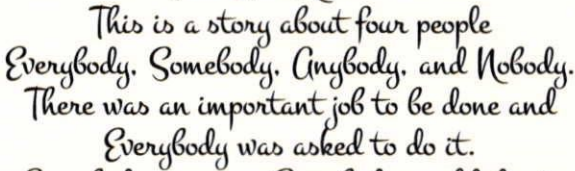 This is a story about four people
Everybody, Somebody, Anybody, and Nobody.
There was an important job to be done and
Everybody was asked to do it.